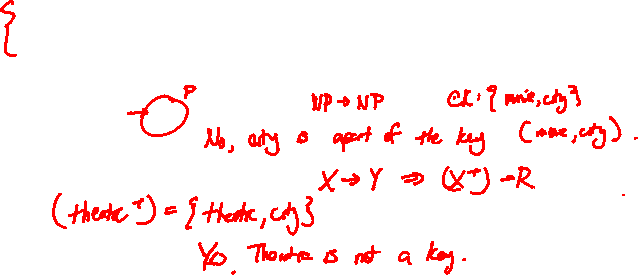 {
P
NP → NP CK: {movie, city}
No, city is apart of the key (movie, city).
X → Y ⇒ (X⁺) → R
(theatre⁺) = {theatre, city}
Yes, Theatre is not a key.